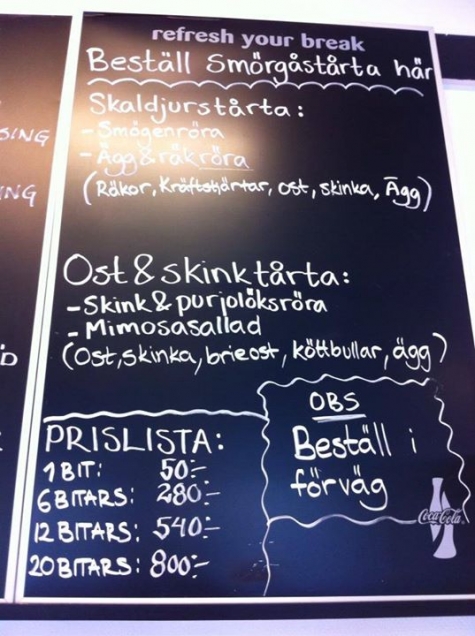 refresh your break
Beställ Smörgåstårta här
Skaldjurstårta:
- Smögenröra
- Ägg & räkröra
(Räkor, Kräftstjärtar, ost, skinka, Ägg)
Ost & skinktårta:
- Skink & purjolöksröra
- Mimosasallad
(Ost, skinka, brieost, köttbullar, ägg)
PRISLISTA:
1 BIT: 50:-
6 BITARS: 280:-
12 BITARS: 540:-
20 BITARS: 800:-
OBS
Beställ i
förväg
Coca-Cola